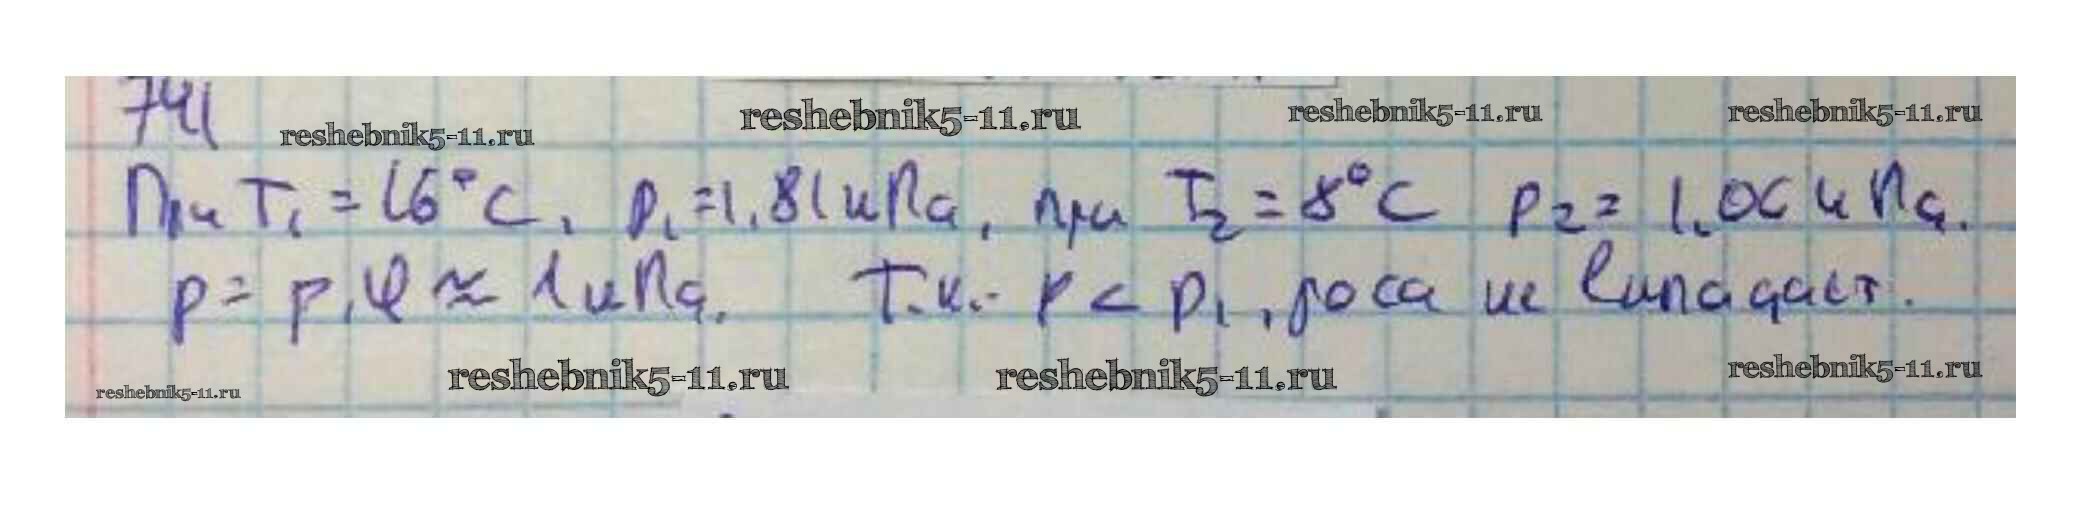 741
reshebnik5-11.ru reshebnik5-11.ru reshebnik5-11.ru reshebnik5-11.ru
При T₁ = 16°C, p₁ = 1,81 кПа, при T₂ = 8°C p₂ = 1,06 кПа.
p = p₁φ ≈ 1 кПа. Т.к. p < p₁, роса не выпадает.
reshebnik5-11.ru reshebnik5-11.ru reshebnik5-11.ru reshebnik5-11.ru